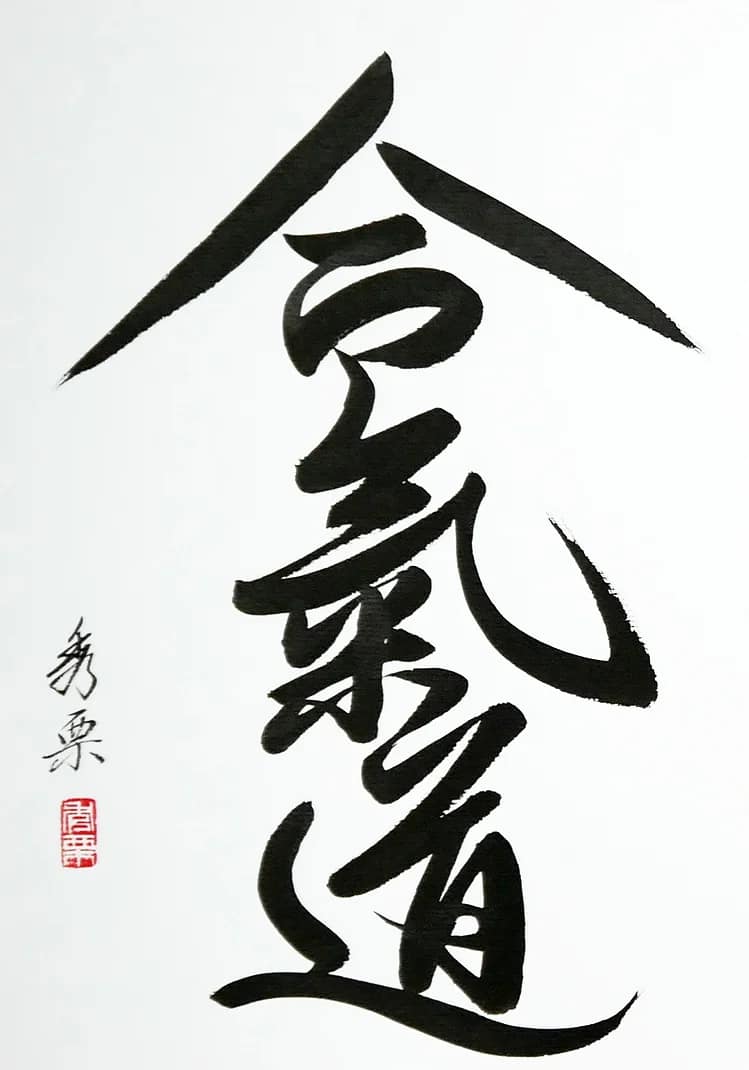 合氣道
秀栗